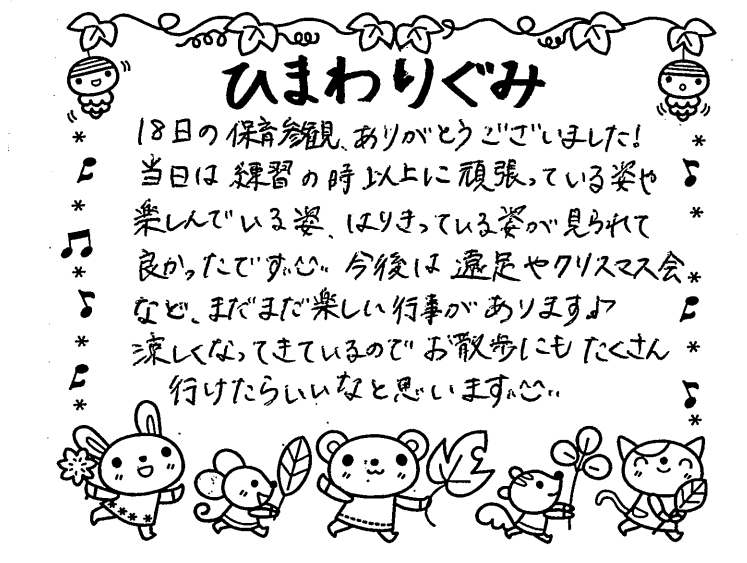 ひまわりぐみ
18日の保育参観、ありがとうございました!
当日は練習の時以上に頑張っている姿や
楽しんでいる姿、はりきっている姿が見られて
良かったです。今後は遠足やクリスマス会
など、まだまだ楽しい行事があります♪
涼しくなってきているのでお散歩にもたくさん
行けたらいいなと思います